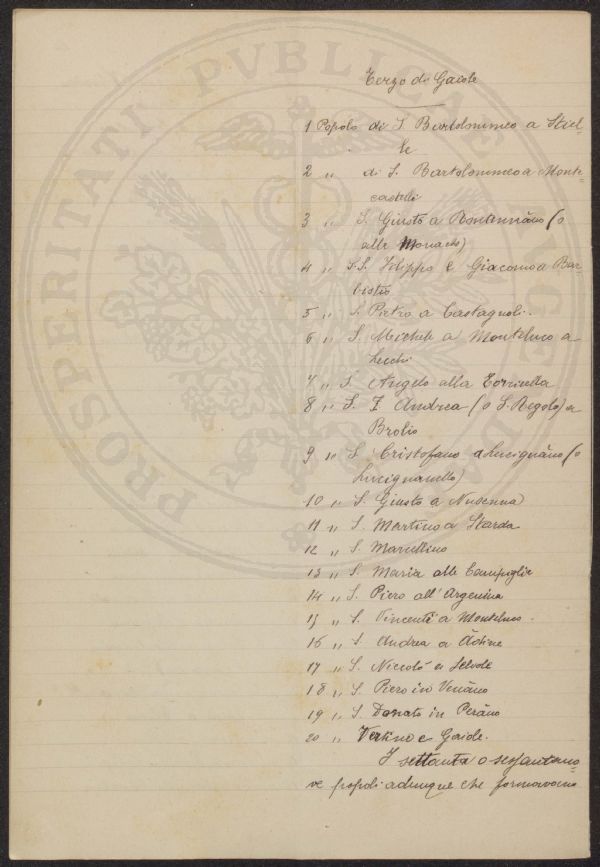 PROSPERITATI PVBLICAE
Terzo di Gaiole
1 Popolo di S Bartolommeo a Stiel-
le
2 " di S. Bartolommeo a Monte-
castelli
3 " S. Giusto a Rentennano (o
alle Monache)
4 " S.S. Filippo e Giacomo a Bar-
bistio
5 " S. Pietro a Castagnoli.
6 " S. Michele a Monteluco a
Lecchi
7 " S. Angelo alla Torricella
8 " S. Andrea (o S. Regolo) a
Brolio
9 " S Cristofano a Lucignano (o
Lucignanello)
10 " S. Giusto a Nusenna
11 " S. Martino a Starda
12 " S. Marcellino
13 " S. Maria alle Campiglie
14 " S. Piero all'Argenina
15 " S. Vincenti a Monteluco.
16 " S. Andrea a Adine
17 " S. Niccolò a Selvole
18 " S. Piero in Venano
19 " S. Donato in Perano
20 " Vertino e Gaiole.
I settanta o sessantano-
ve popoli adunque che formavano